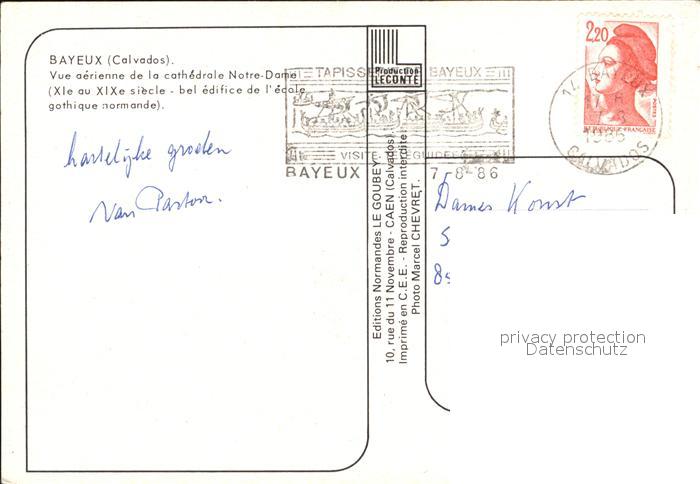 BAYEUX (Calvados).
Vue aérienne de la cathédrale Notre-Dame
(XIe au XIXe siècle - bel édifice de l'école
gothique normande).
hartelijke groeten
Van Pastoor.
Production
LECONTE
TAPISSERIE BAYEUX
VISITE GUIDEE
BAYEUX 7-8-86
2,20
POSTES
REPUBLIQUE FRANÇAISE
14 BAYEUX
CALVADOS
Editions Normandes LE GOUBEY
10, rue du 11 Novembre - CAEN (Calvados)
Imprimé en C.E.E. - Reproduction interdite
Photo Marcel CHEVRET.
Dames
5
8
privacy protection
Datenschutz